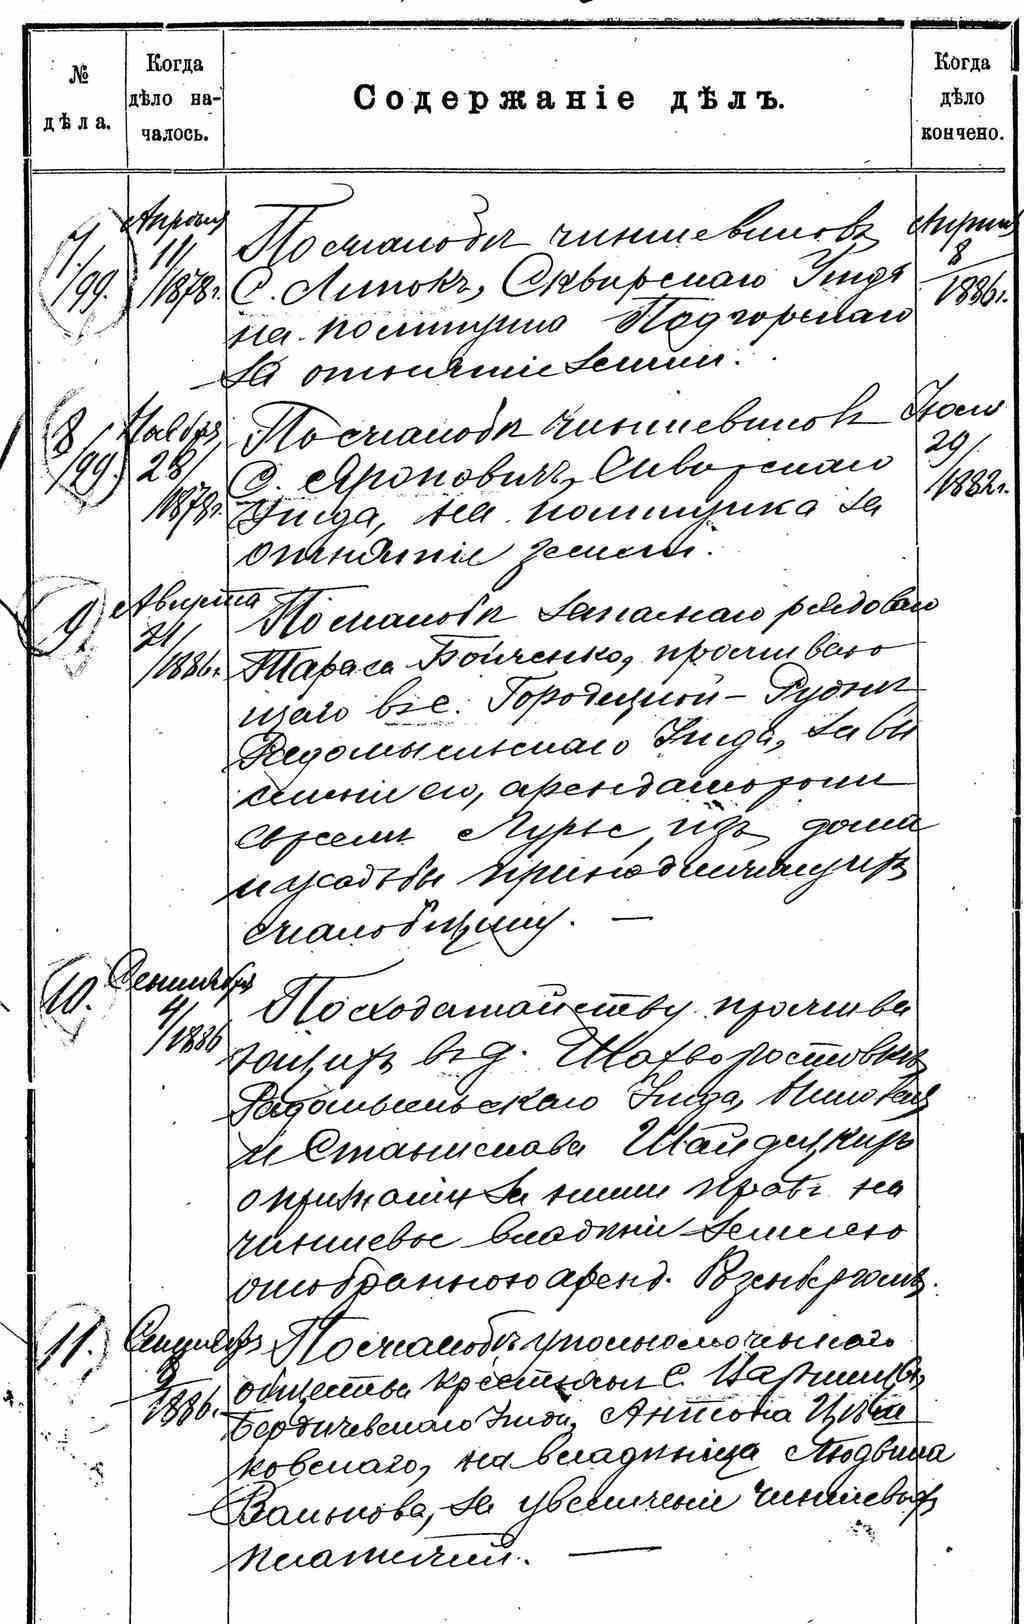 № дѣла.
Когда дѣло началось.
Содержаніе дѣлъ.
Когда дѣло кончено.
7./99.
Апрѣля 11/1878 г.
По жалобѣ чиншевиковъ
с. Липокъ, Сквирскаго Уѣзда
на помѣщика Подгорскаго
за отнятіе земли.
Апрѣля 8/1886 г.
8/99.
Ноября 28/1878 г.
По жалобѣ чиншевиковъ
с. Яроповичъ, Сквирскаго
Уѣзда, на помѣщика за
отнятіе земли.
Іюля 29/1882 г.
9.
Августа 21/1886 г.
По жалобѣ запаснаго рядоваго
Тараса Бойченко, проживаю
щаго въ с. Городецкой-Рудни
Радомысльскаго Уѣзда, за вы
селеніе его, арендаторомъ
евреемъ Лурье, изъ дома
и усадьбы принадлежащихъ
жалобщику. —
10.
Сентября 4/1886
По ходатайству прожива
ющихъ въ д. Шахворостовкѣ
Радомысльскаго Уѣзда,
и Станислава Шайдецкихъ
о признаніи за ними правъ на
чиншевое владѣніе землею
отобранною аренд. Розенбергомъ.
11.
Сентября 9/1886.
По жалобѣ уполномоченнаго
общества крестьянъ с.
Бердичевскаго Уѣзда, Антона
ковскаго, на владѣльца Людвига
за увеличеніе чиншевыхъ
платежей. —